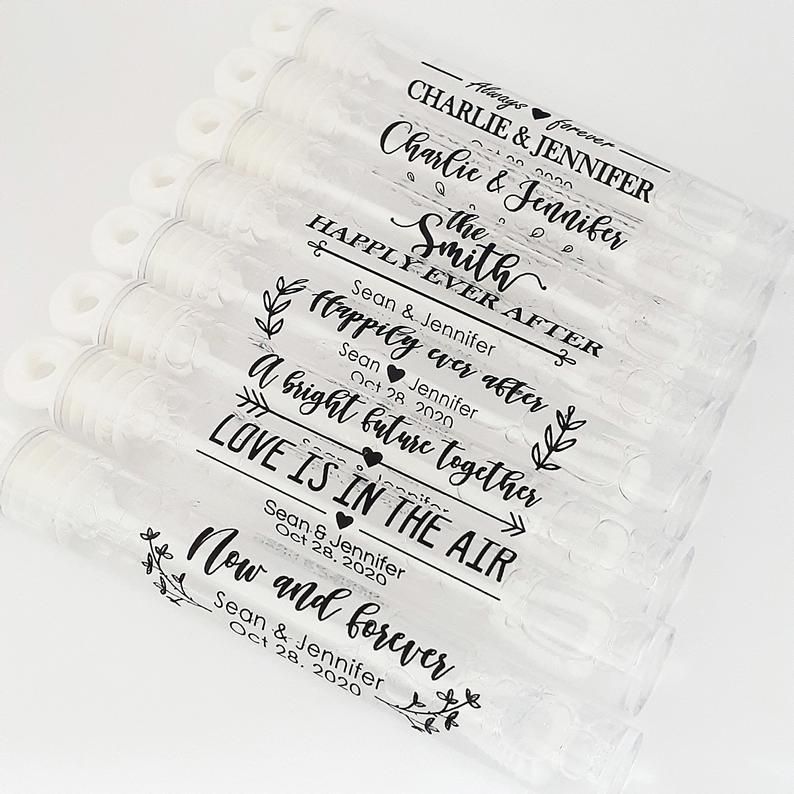 Always forever
CHARLIE & JENNIFER
Oct 28, 2020
Charlie & Jennifer
the
Smith
HAPPLY EVER AFTER
Sean & Jennifer
Happily ever after
Sean Jennifer
Oct 28, 2020
A bright future together
Sean & Jennifer
LOVE IS IN THE AIR
Sean & Jennifer
Oct 28, 2020
Now and forever
Sean & Jennifer
Oct 28, 2020